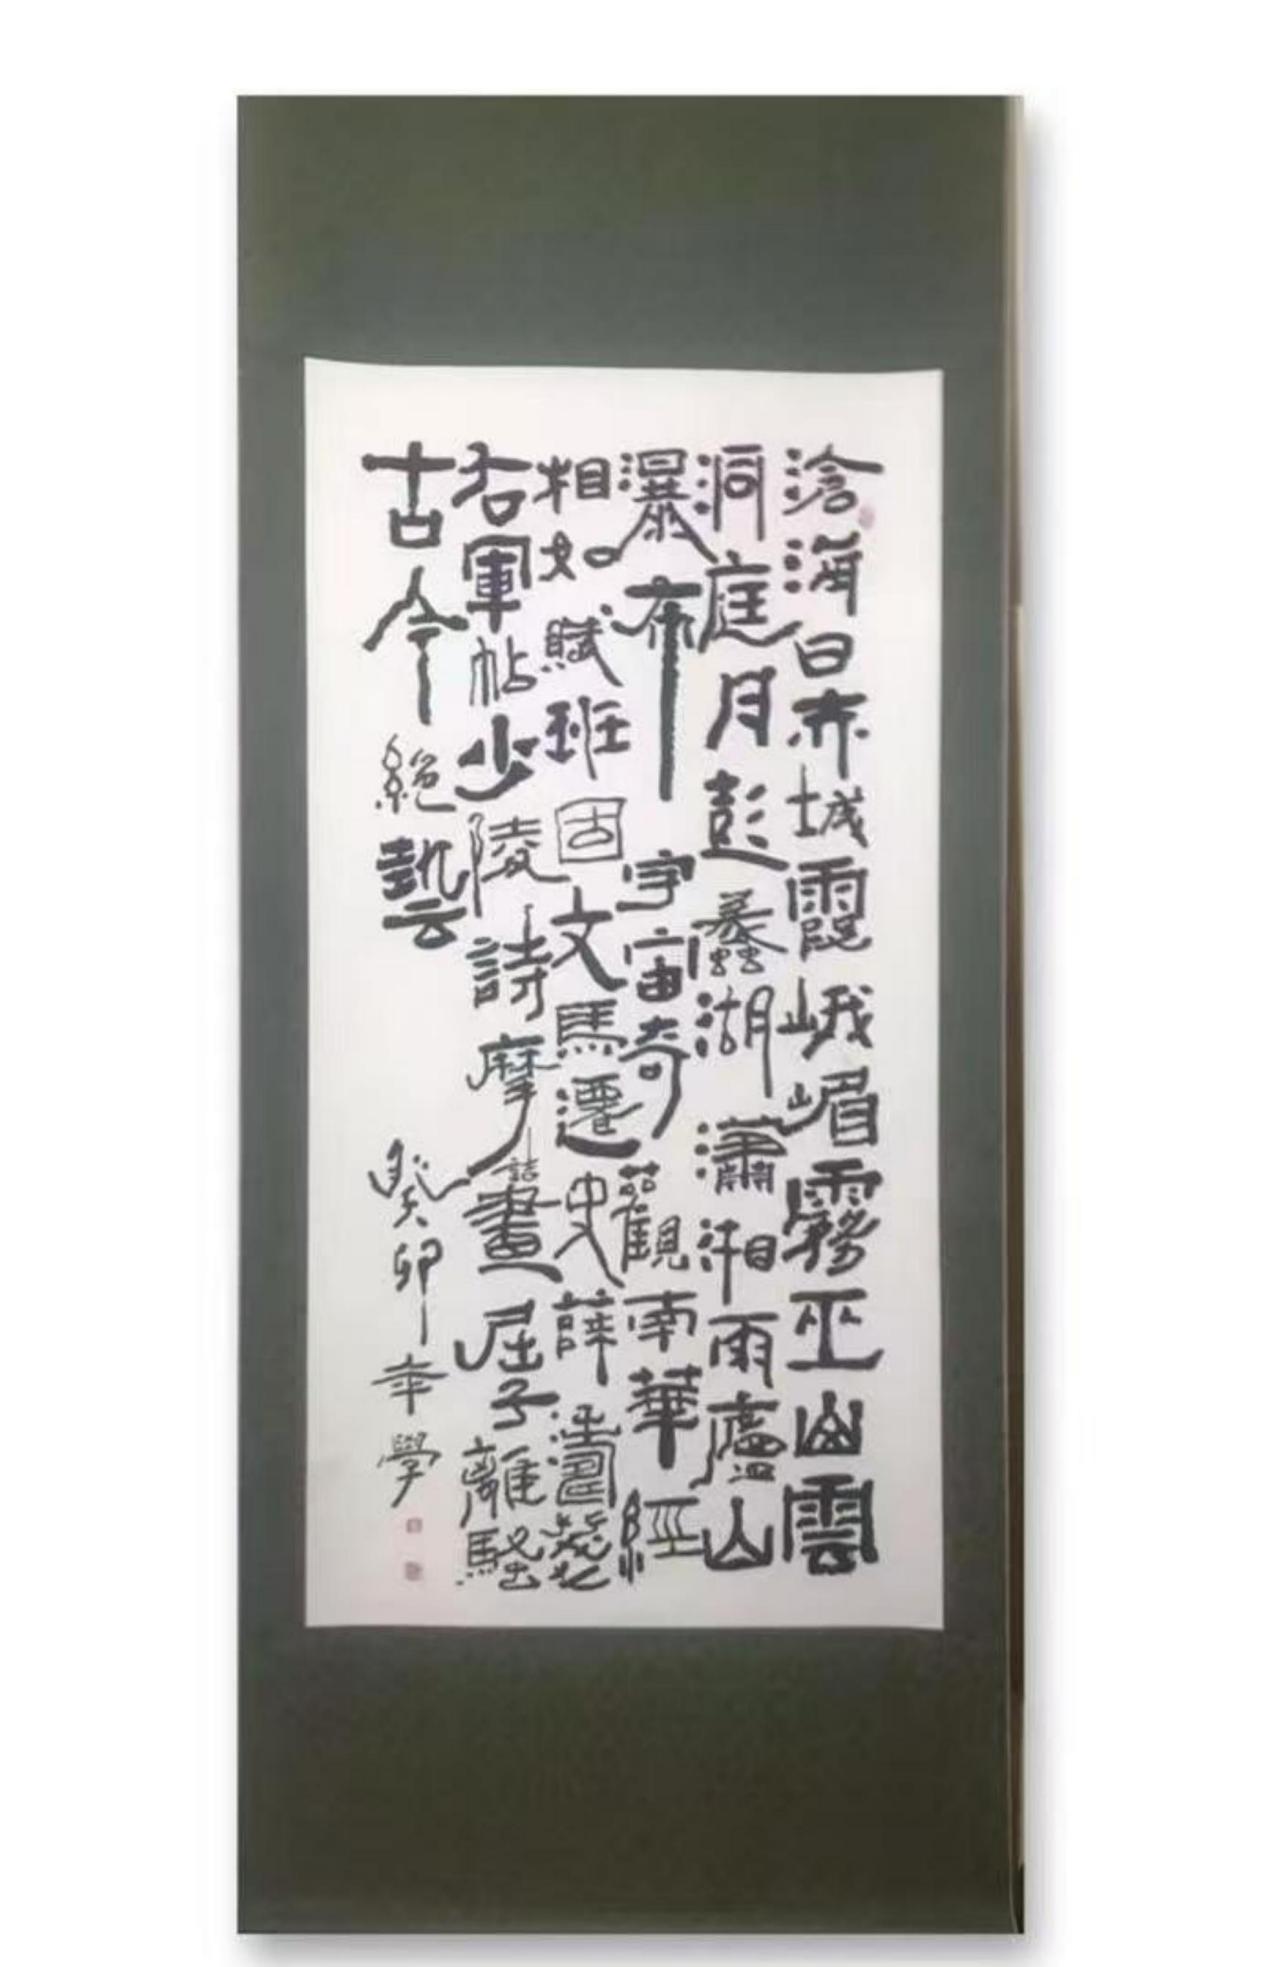 滄海日赤城霞峨嵋霧巫山雲
洞庭月彭蠡湖瀟湘雨廬山
瀑布宇宙奇觀南華經
相如賦班固文馬遷史薛濤箋
右軍帖少陵詩摩詰畫屈子離騷
古今絕藝
癸卯年學